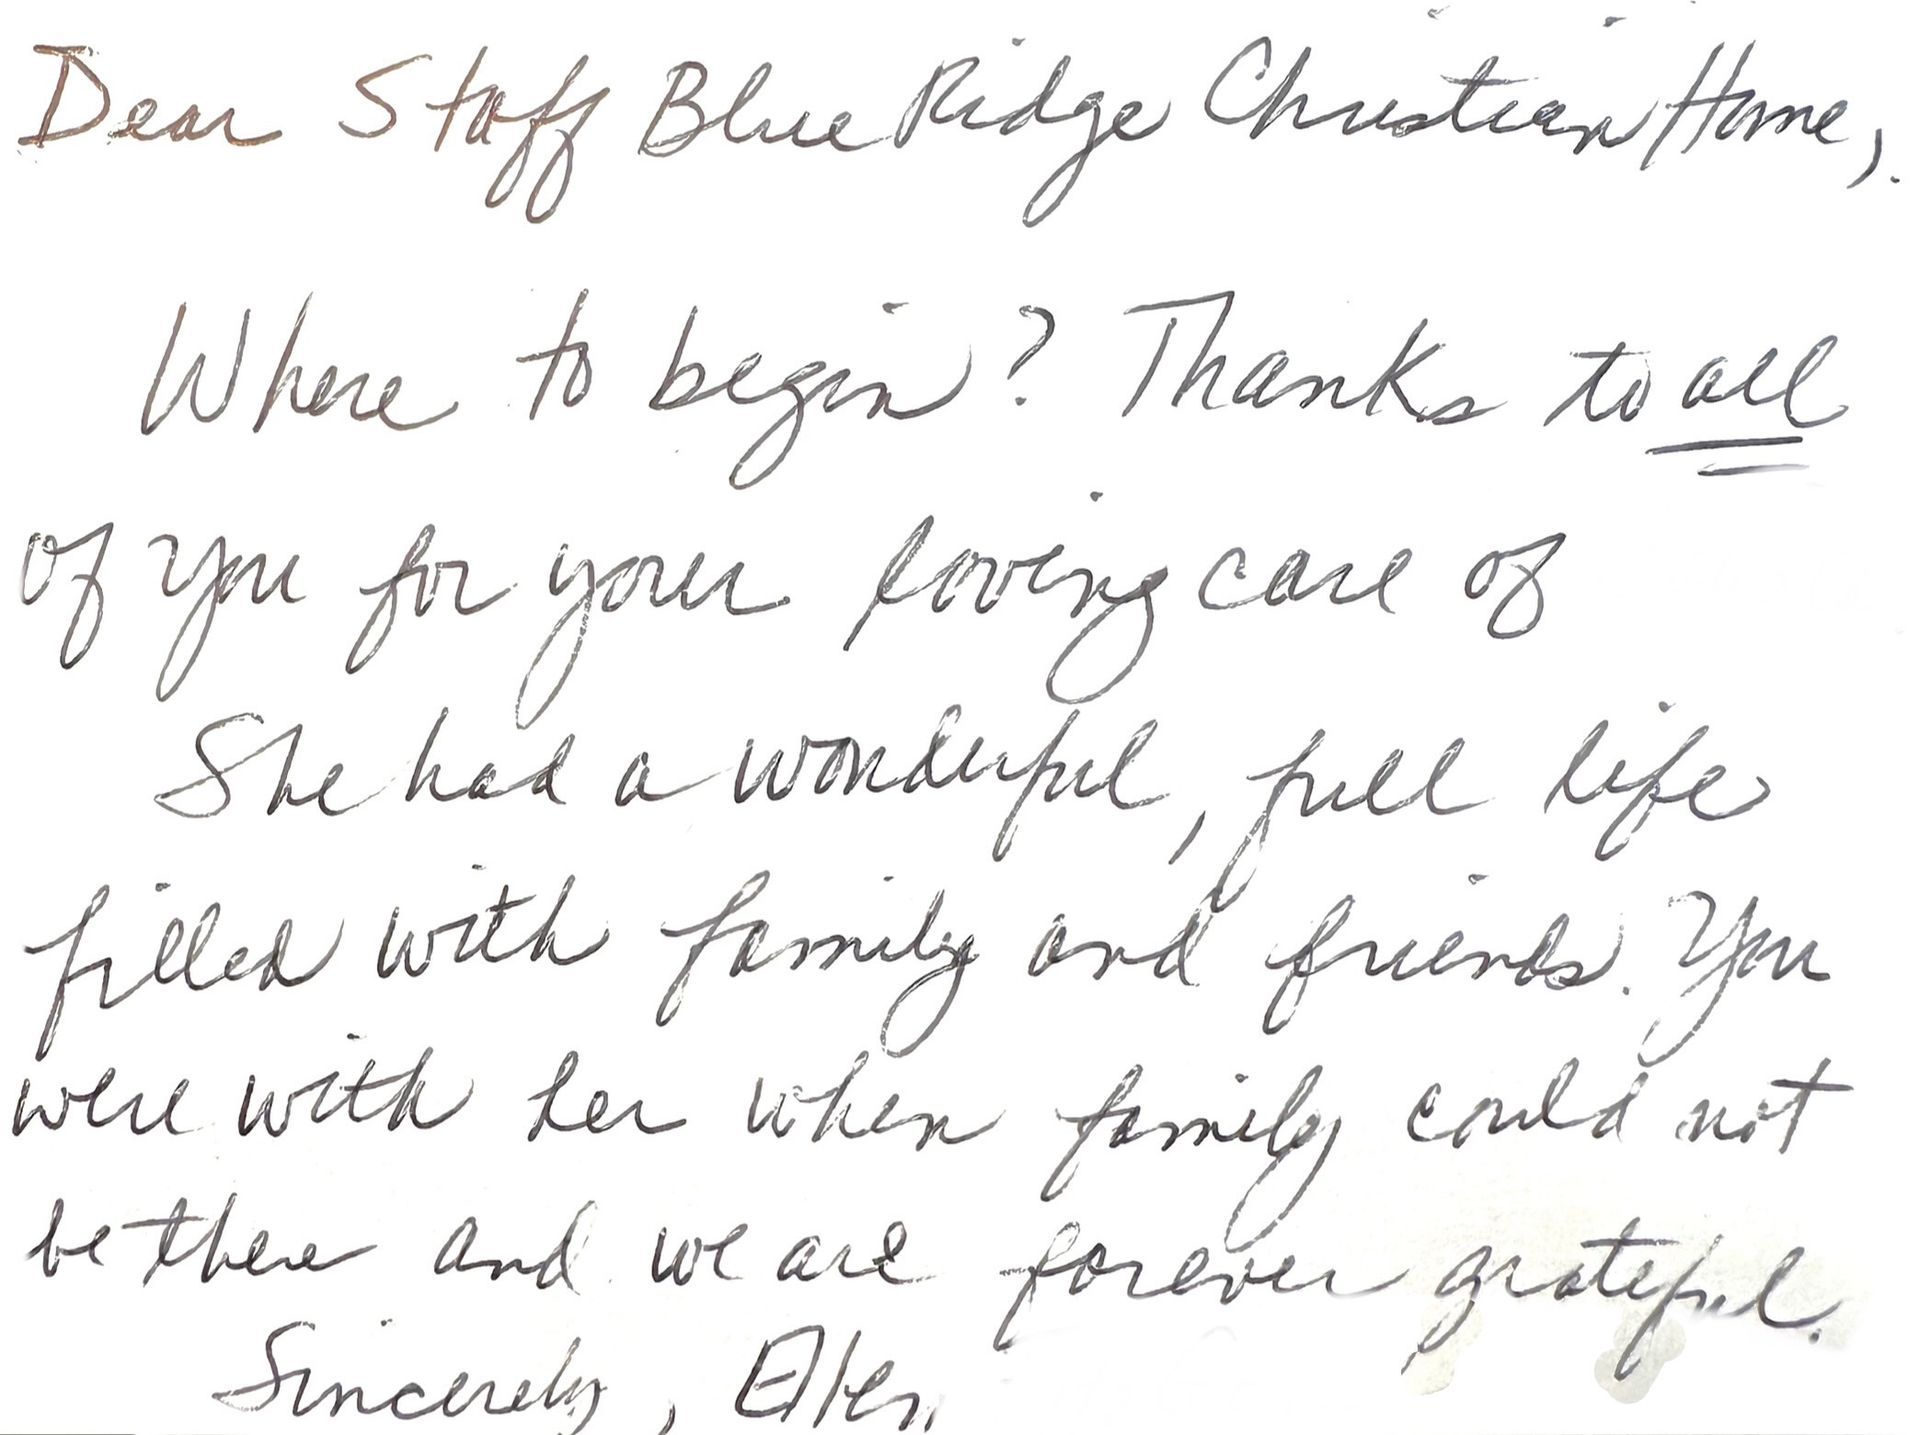 Dear Staff Blue Ridge Christian Home,
Where to begin? Thanks to all
of you for your loving care of
She had a wonderful, full life
filled with family and friends. You
were with her when family could not
be there and we are forever grateful.
Sincerely, Ellen